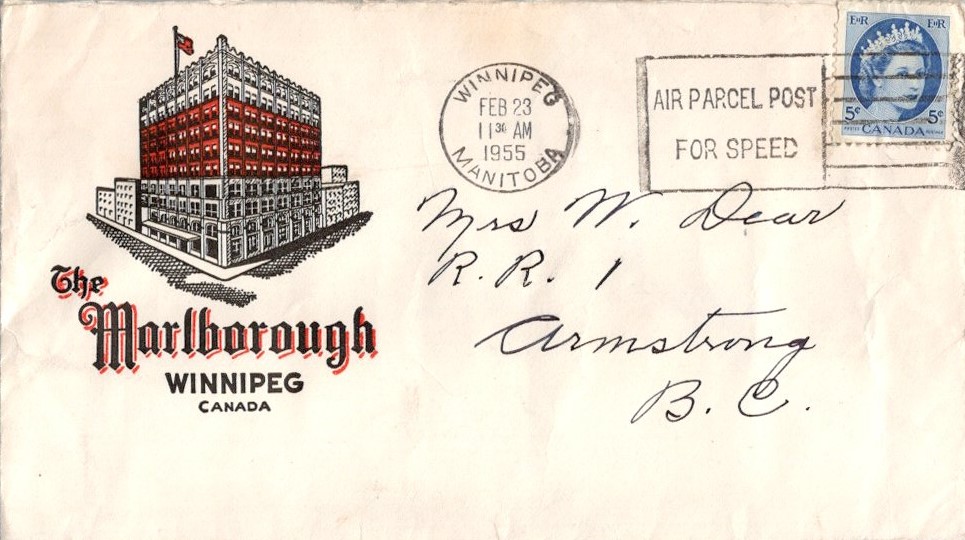 The
Marlborough
WINNIPEG
CANADA
WINNIPEG
FEB 23
11 30 AM
1955
MANITOBA
AIR PARCEL POST
FOR SPEED
EIIR EIIR
5¢ 5¢
POSTES CANADA POSTAGE
Mrs W. Dear
R. R. 1
Armstrong
B. C.